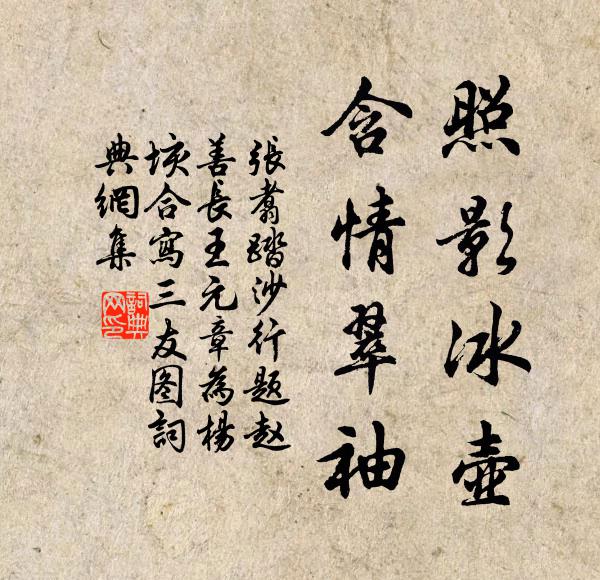 照影冰壺
含情翠袖
張翥踏沙行題赵
善長王元章為楊
垓合寫三友图詞
典網集
詞典网印